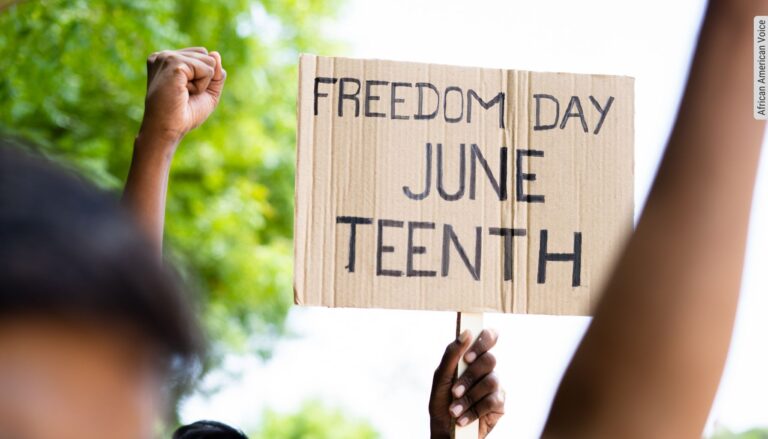 FREEDOM DAY
JUNE
TEENTH
African American Voice